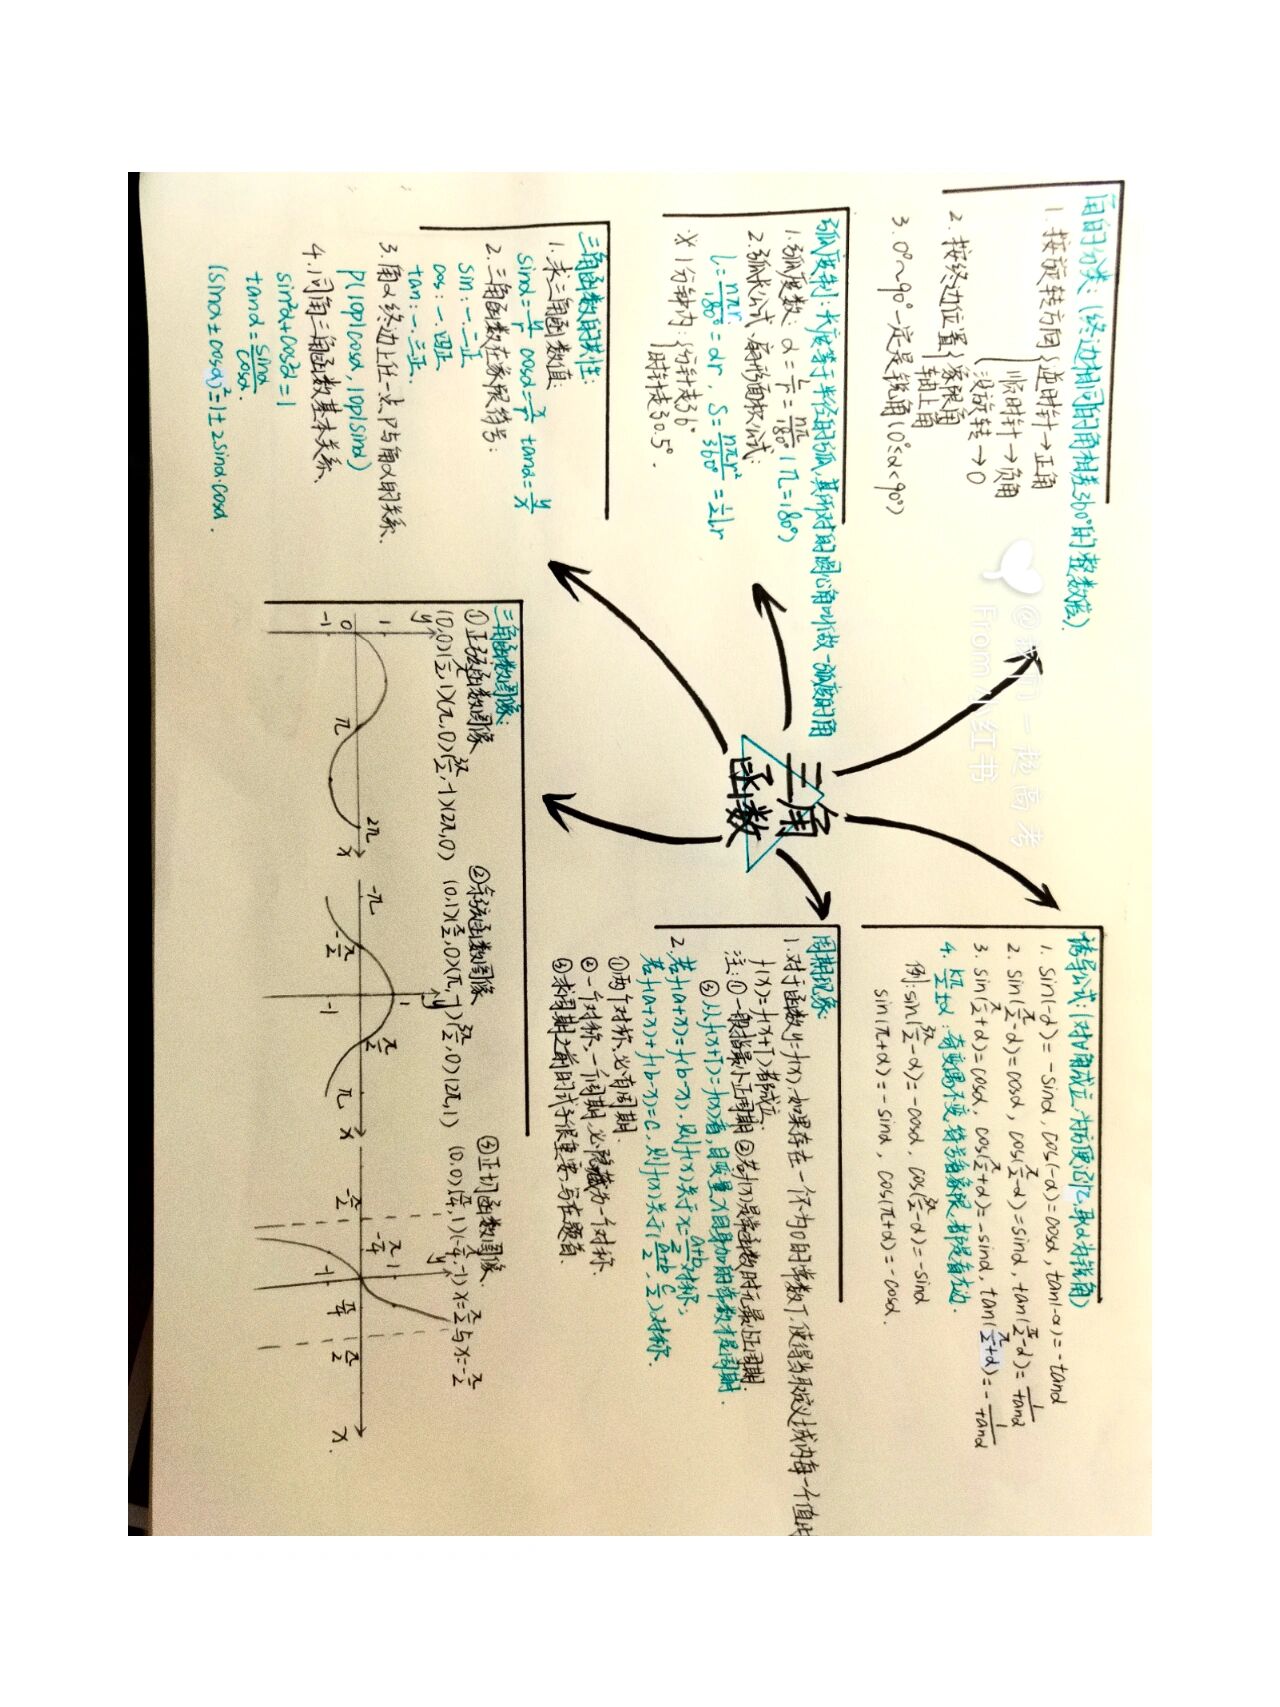 三角
函数
角的分类:(终边相同的角相差360°的整数倍).
1. 按旋转方向{逆时针→正角
顺时针→负角
没旋转→0
2. 按终边位置{象限角
轴上角
3. 0°~90°一定是锐角(0°≤α<90°)
弧度制:长度等于半径的弧,其所对的圆心角叫做一弧度的角
1. 弧度数: α=l/r=nπ/180° (π=180°)
2. 弧长公式,扇形面积公式:
l=nπr/180°=αr, S=nπr²/360°=½lr
※ 1分钟内:{分针走6°
时针走30.5°.
三角函数的共性:
1. 求三角函数值:
sinα=y/r cosα=x/r tanα=y/x
2. 三角函数在象限符号:
sin:一.二正
cos:一.四正
tan:一.三正.
3. 角α终边上任一点P与角α的关系.
P(|OP|cosα,|OP|sinα)
4. 同角三角函数基本关系.
sin²α+cos²α=1
tanα=sinα/cosα.
(sinα±cosα)²=1±2sinα·cosα.
诱导公式:(对∀角成立,为方便记忆,取α为锐角)
1. sin(-α)=-sinα, cos(-α)=cosα, tan(-α)=-tanα
2. sin(π/2-α)=cosα, cos(π/2-α)=sinα, tan(π/2-α)=1/tanα
3. sin(π/2+α)=cosα, cos(π/2+α)=-sinα, tan(π/2+α)=-1/tanα
4. kπ/2±α:奇变偶不变,符号看象限,都是看左边.
例:sin(3π/2-α)=-cosα, cos(3π/2-α)=-sinα
sin(π+α)=-sinα, cos(π+α)=-cosα.
周期现象:
1. 对于函数y=f(x),如果存在一个不为0的常数T,使得当取定义域内每一个值时
f(x)=f(x+T)都成立.
注:①一般指最小正周期 ②若f(x)是常数时无最小正周期.
③从f(x+T)=f(x)看,自变量x自身加的常数才是周期.
2. 若f(a+x)=f(b-x).则f(x)关于x=a+b/2对称;
若f(a+x)+f(b-x)=C,则f(x)关于(a+b/2,C/2)对称.
①两个对称,必有周期.
②一个对称、一个周期,必隐藏另一个对称.
③求周期之前的式子很重要,写在题首.
三角函数图像:
①正弦函数图像
(0,0)(π/2,1)(π,0)(3π/2,-1)(2π,0)
y
1
0
-1
π
2π
x
②余弦函数图像
(0,1)(π/2,0)(π,-1)(3π/2,0)(2π,1)
y
1
-1
-π
-π/2
π/2
π
x
③正切函数图像.
(0,0)(π/4,1)(-π/4,-1) x=π/2与x=-π/2
y
1
-1
-π/2
-π/4
π/4
π/2
x.
From小红书